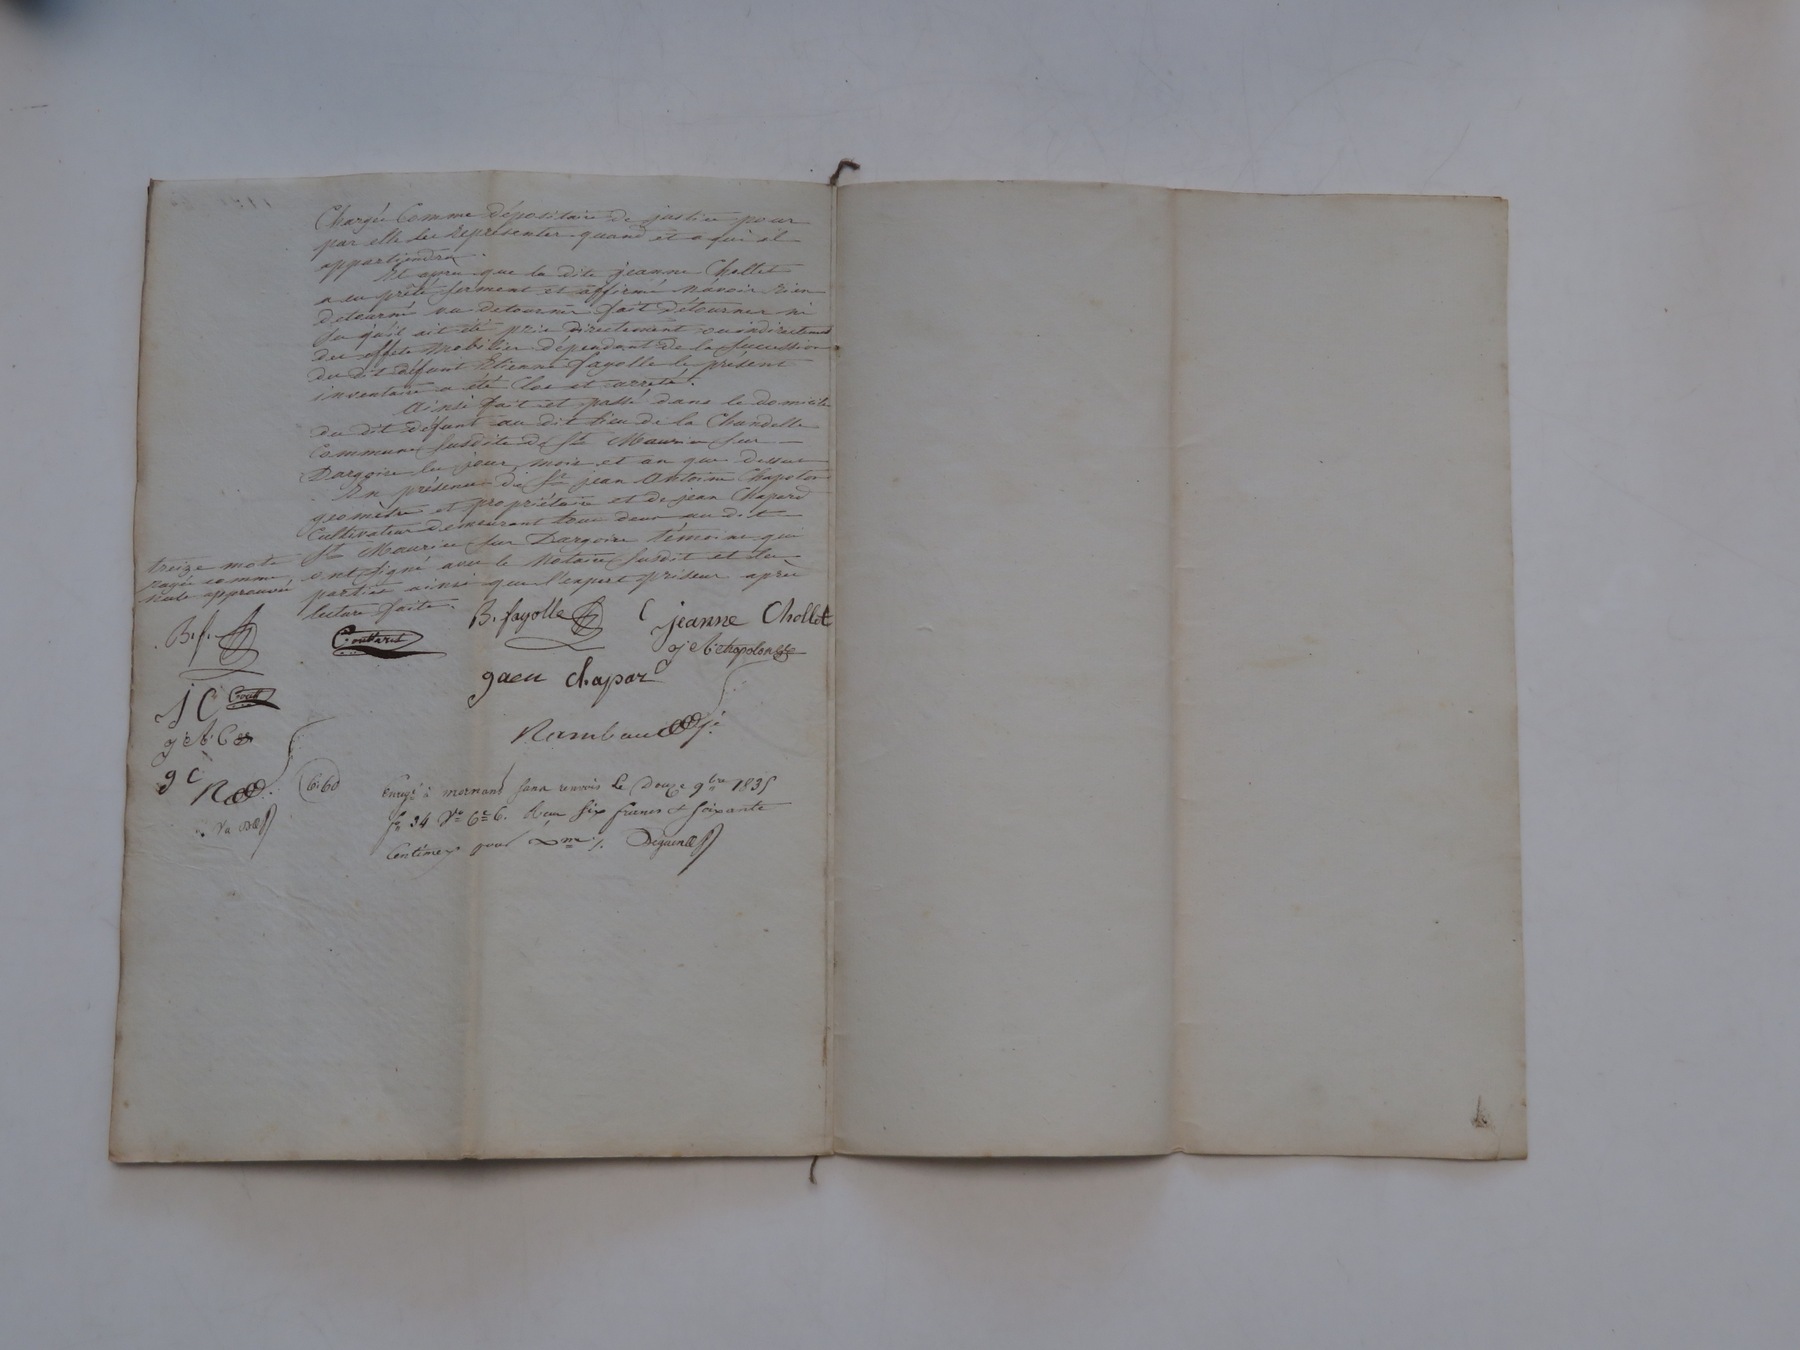 Chargée Comme dépositaire de justice pour
par elle les Représenter quand et a qui il
appartiendra.
Et après que la dite jeanne Chollet
a eu prêté serment et affirmé n'avoir Rien
détourné vu detourner fait détourner ni
su qu'il ait été pris directement ou indirectement
des effets Mobilier dépendant de la succession
du dit défunt Etienne fayolle le présent
inventaire a été Clos et arreté.
Ainsi fait et passé dans le domicile
du dit défunt au dit lieu de la Chandelle
Commune susdite de St Maurice sur
Dargoire les jour, mois et an que dessus
En présence de Sr jean Antoine Chapolon
geomètre et propriétaire et de jean Chapard
Cultivateur demeurant tous deux au dit
St Maurice sur Dargoire témoins qui
ont signé avec le Notaire susdit et les
parties ainsi que l'expert priseur après
lecture faite.
treize mots
rayés comme
nuls approuvés
B. f.
Coutturet
B. fayolle
jeanne Chollet
Chapolon
j C
gaen chapar
g C
Rambaud
6.60
Enregé à mornant sans renvois Le Douze 9bre 1835
fo 34 Vo Ce 6. Reçu six francs & soixante
Centimes pour